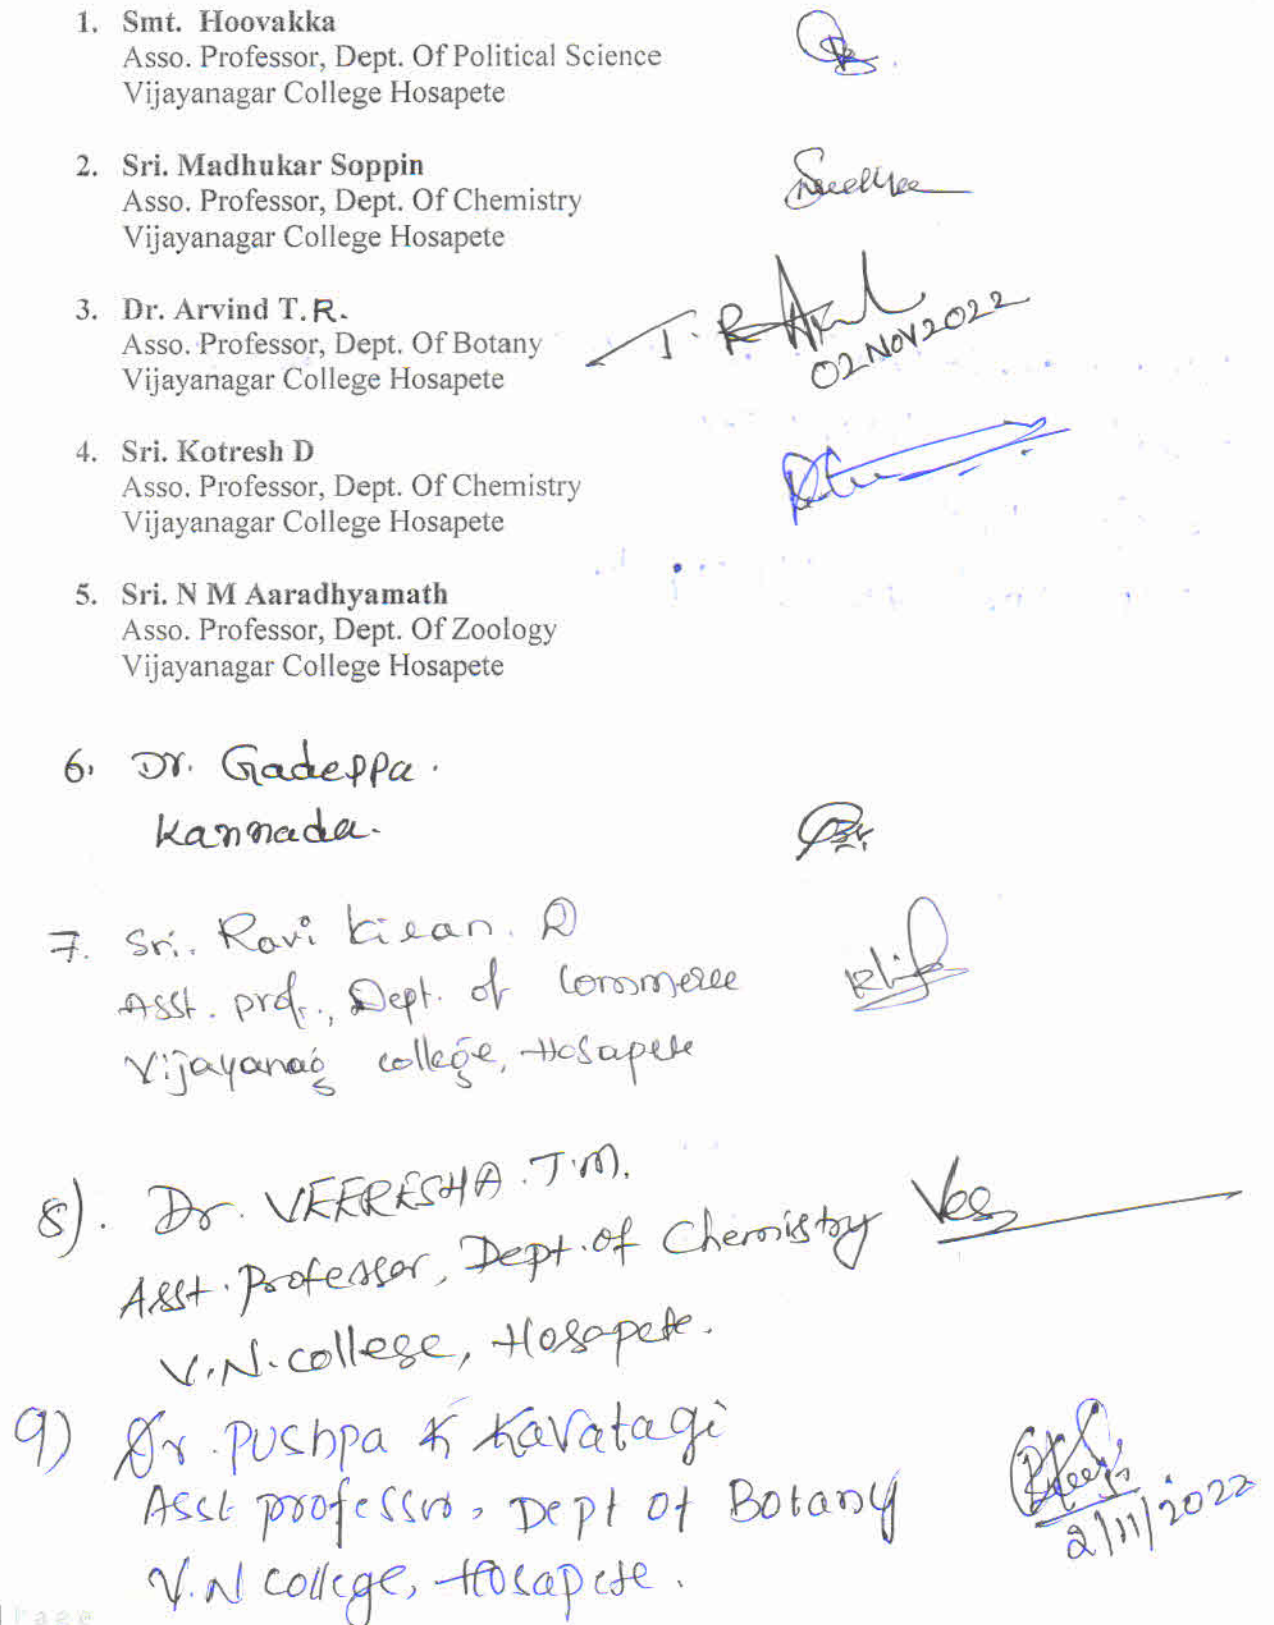 1. Smt. Hoovakka
Asso. Professor, Dept. Of Political Science
Vijayanagar College Hosapete
2. Sri. Madhukar Soppin
Asso. Professor, Dept. Of Chemistry
Vijayanagar College Hosapete
3. Dr. Arvind T.R.
Asso. Professor, Dept. Of Botany
Vijayanagar College Hosapete
T. R.
02 NOV 2022
4. Sri. Kotresh D
Asso. Professor, Dept. Of Chemistry
Vijayanagar College Hosapete
5. Sri. N M Aaradhyamath
Asso. Professor, Dept. Of Zoology
Vijayanagar College Hosapete
6. Dr. Gadeppa.
Kannada.
7. Sri. Ravi Kiran. D
Asst. prof., Dept. of Commerce
Vijayanag college, Hosapete
8). Dr. VEERESHA. T.M.
Asst. Professor, Dept. of Chemistry Vee
V.N. college, Hosapete.
9) Dr. Pushpa K Kavatagi
Asst professor, Dept of Botany
2/11/2022
V.N college, Hosapete.